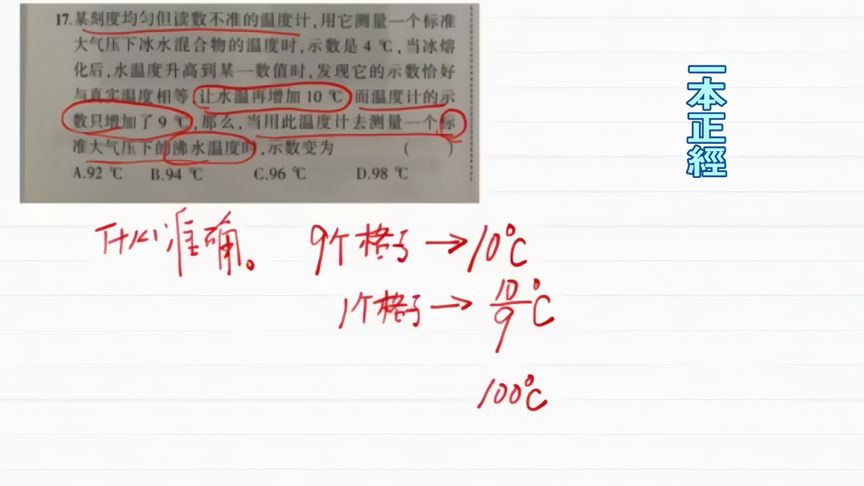 17.某刻度均匀但读数不准的温度计,用它测量一个标准
大气压下冰水混合物的温度时,示数是4 ℃,当冰熔
化后,水温度升高到某一数值时,发现它的示数恰好
与真实温度相等,让水温再增加10 ℃,而温度计的示
数只增加了9 ℃,那么,当用此温度计去测量一个标
准大气压下的沸水温度时,示数变为 ( )
A.92 ℃ B.94 ℃ C.96 ℃ D.98 ℃
一本正經
准确。 9个格子→10℃
1个格子→10/9℃
100℃